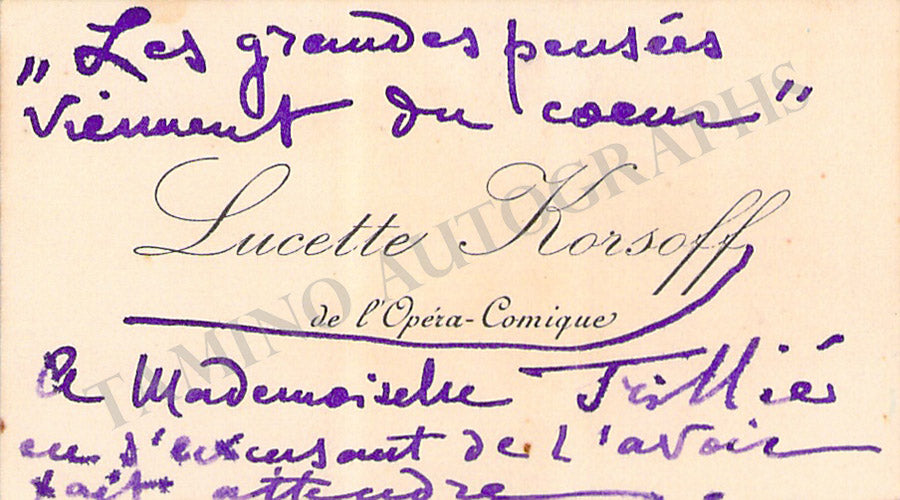 „Les grandes pensées
viennent du coeur"
Lucette Korsoff
de l'Opéra-Comique
TAMINO AUTOGRAPHS
A Mademoiselle
en s'excusant de l'avoir
fait attendre